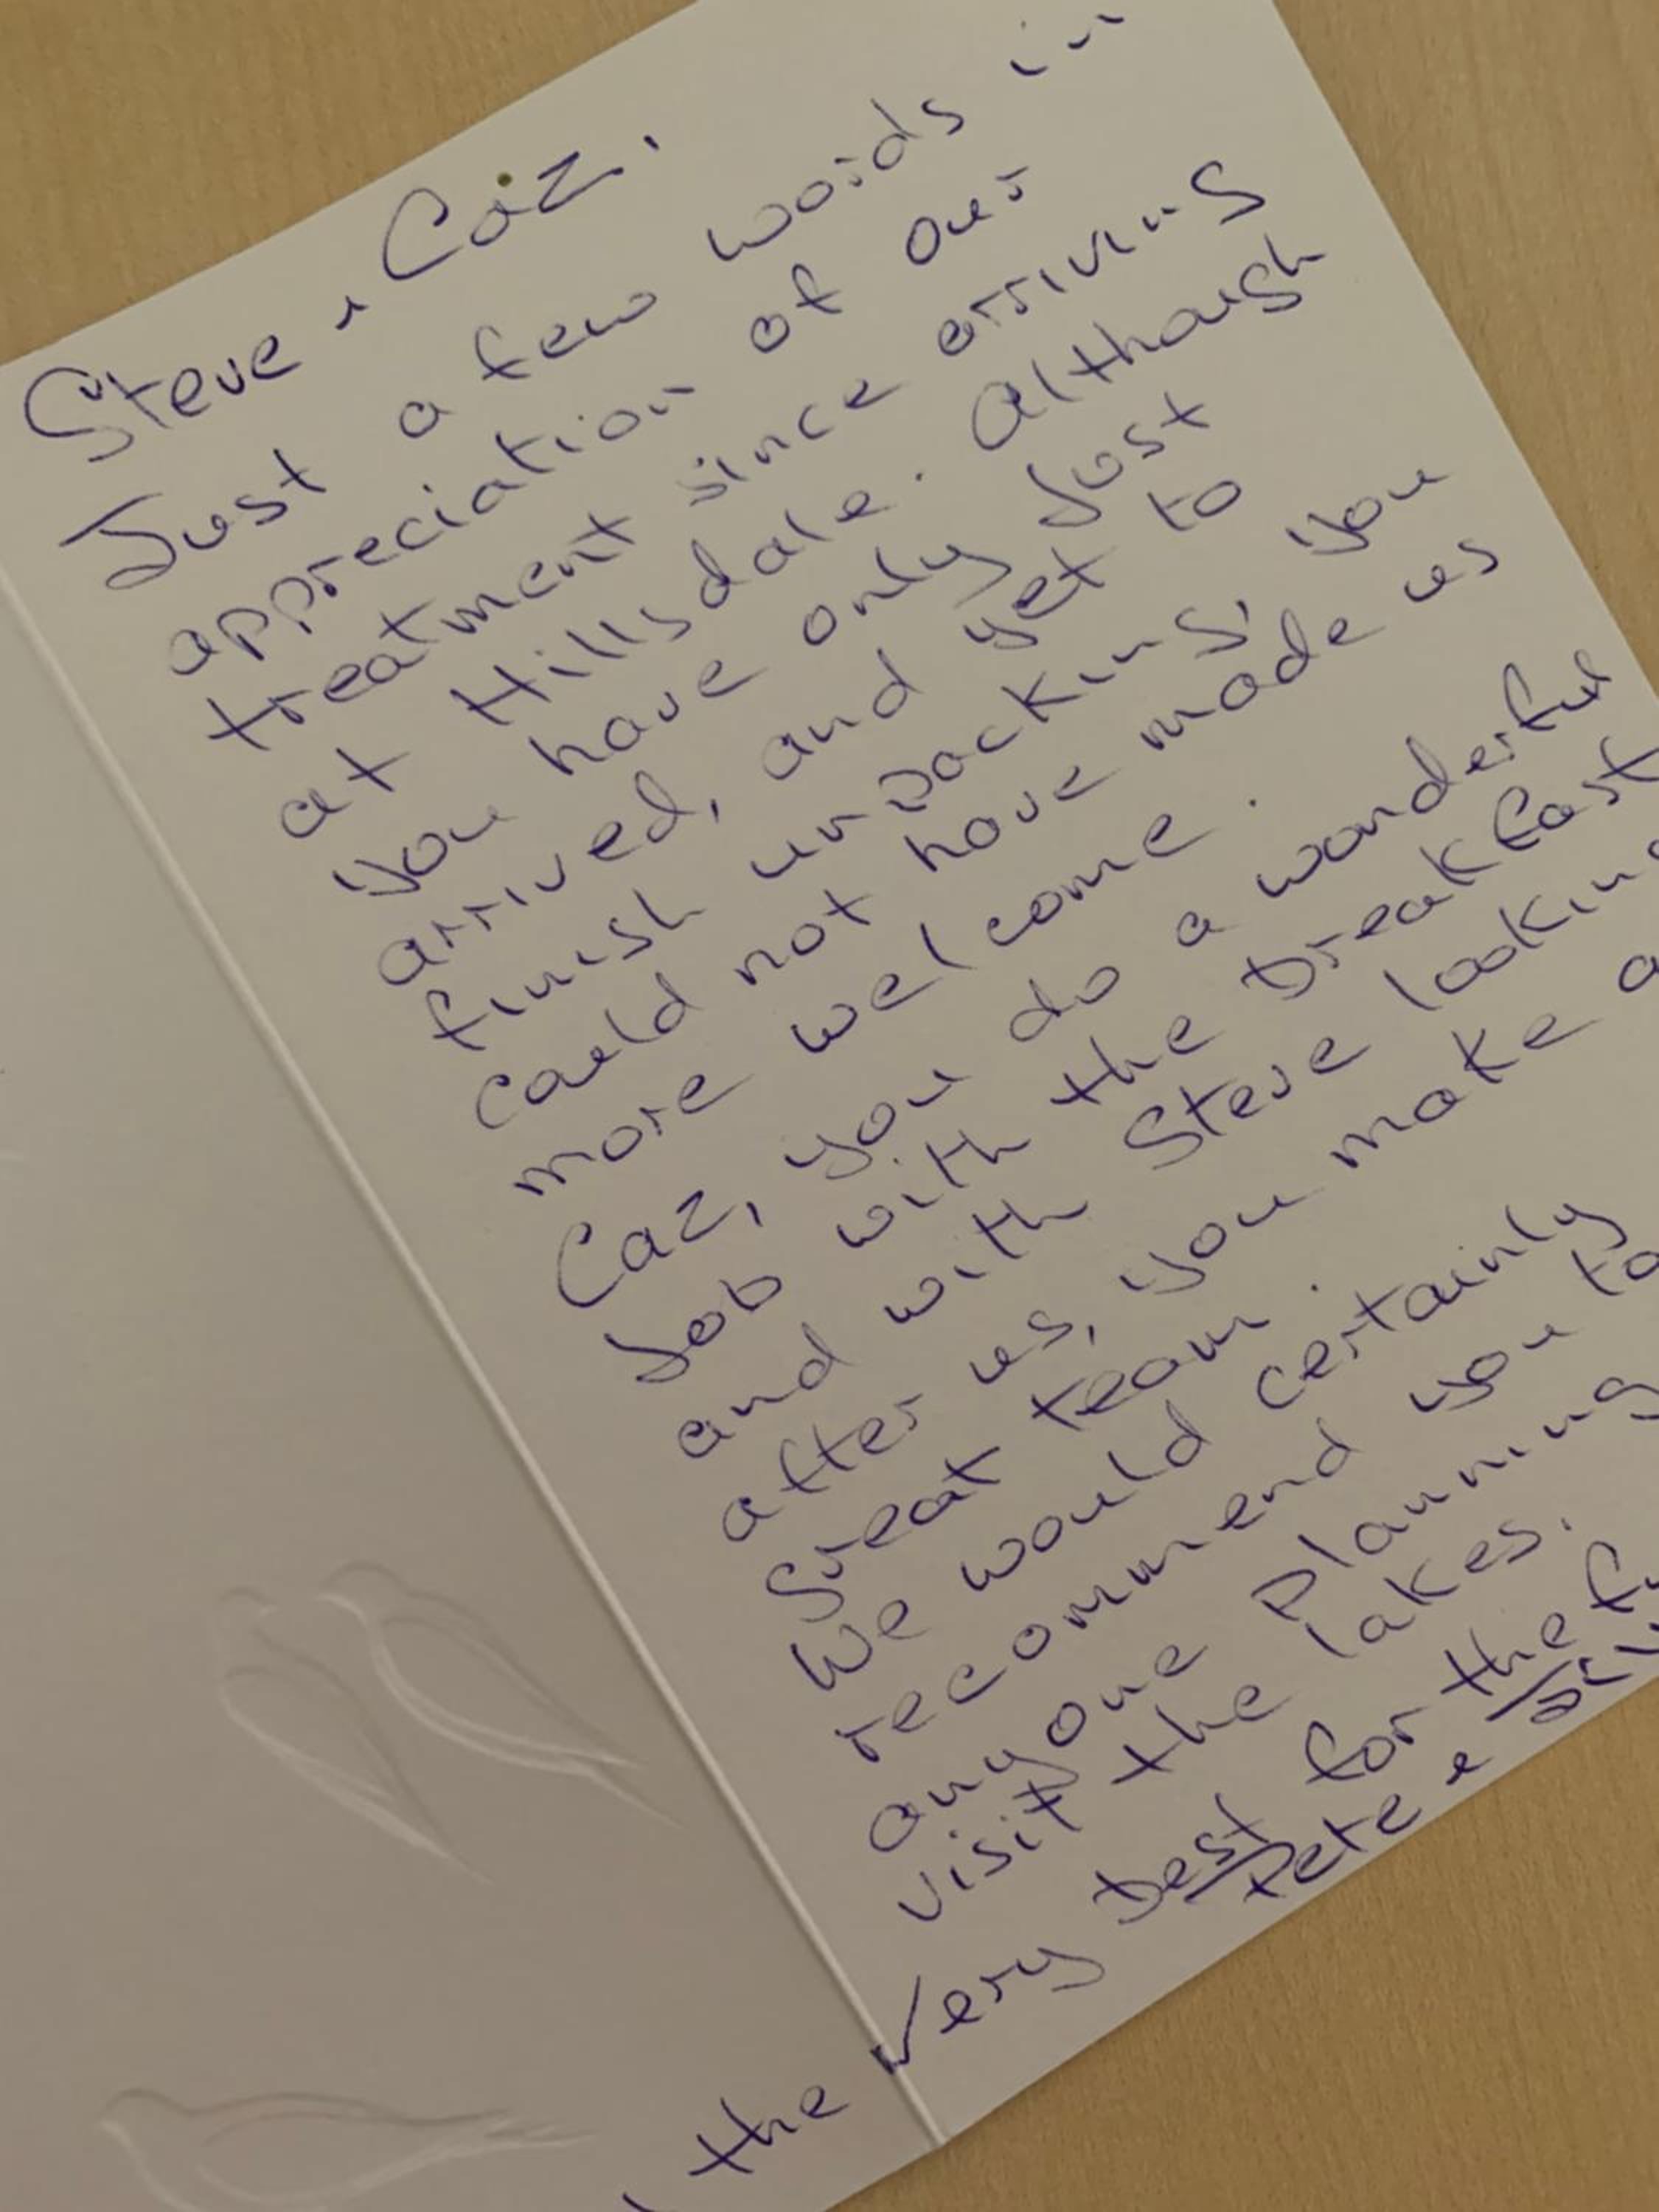 Steve & Caz,
Just a few words in
appreciation of our
treatment since arriving
at Hillsdale. Although
you have only just
arrived, and yet to
finish unpacking, you
could not have made us
more welcome.
Caz, you do a wonderful
job with the breakfast
and with Steve looking
after us, you make a
great team.
We would certainly
recommend you to
anyone planning
visit the lakes.
the Very best for the
Pete &